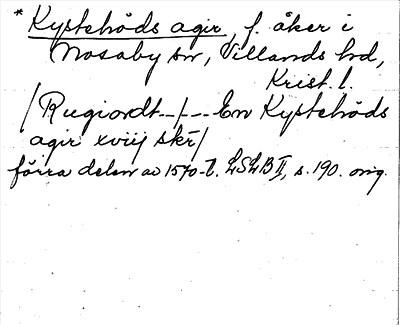 * Kystehöds agir, f. åker i
Nosaby sn, Villands hd,
Krist. l.
/Rugiordt--/-- En Kystehöds
agir xviij skr/
förra delen av 1570-t. LSLB II, s. 190. orig.